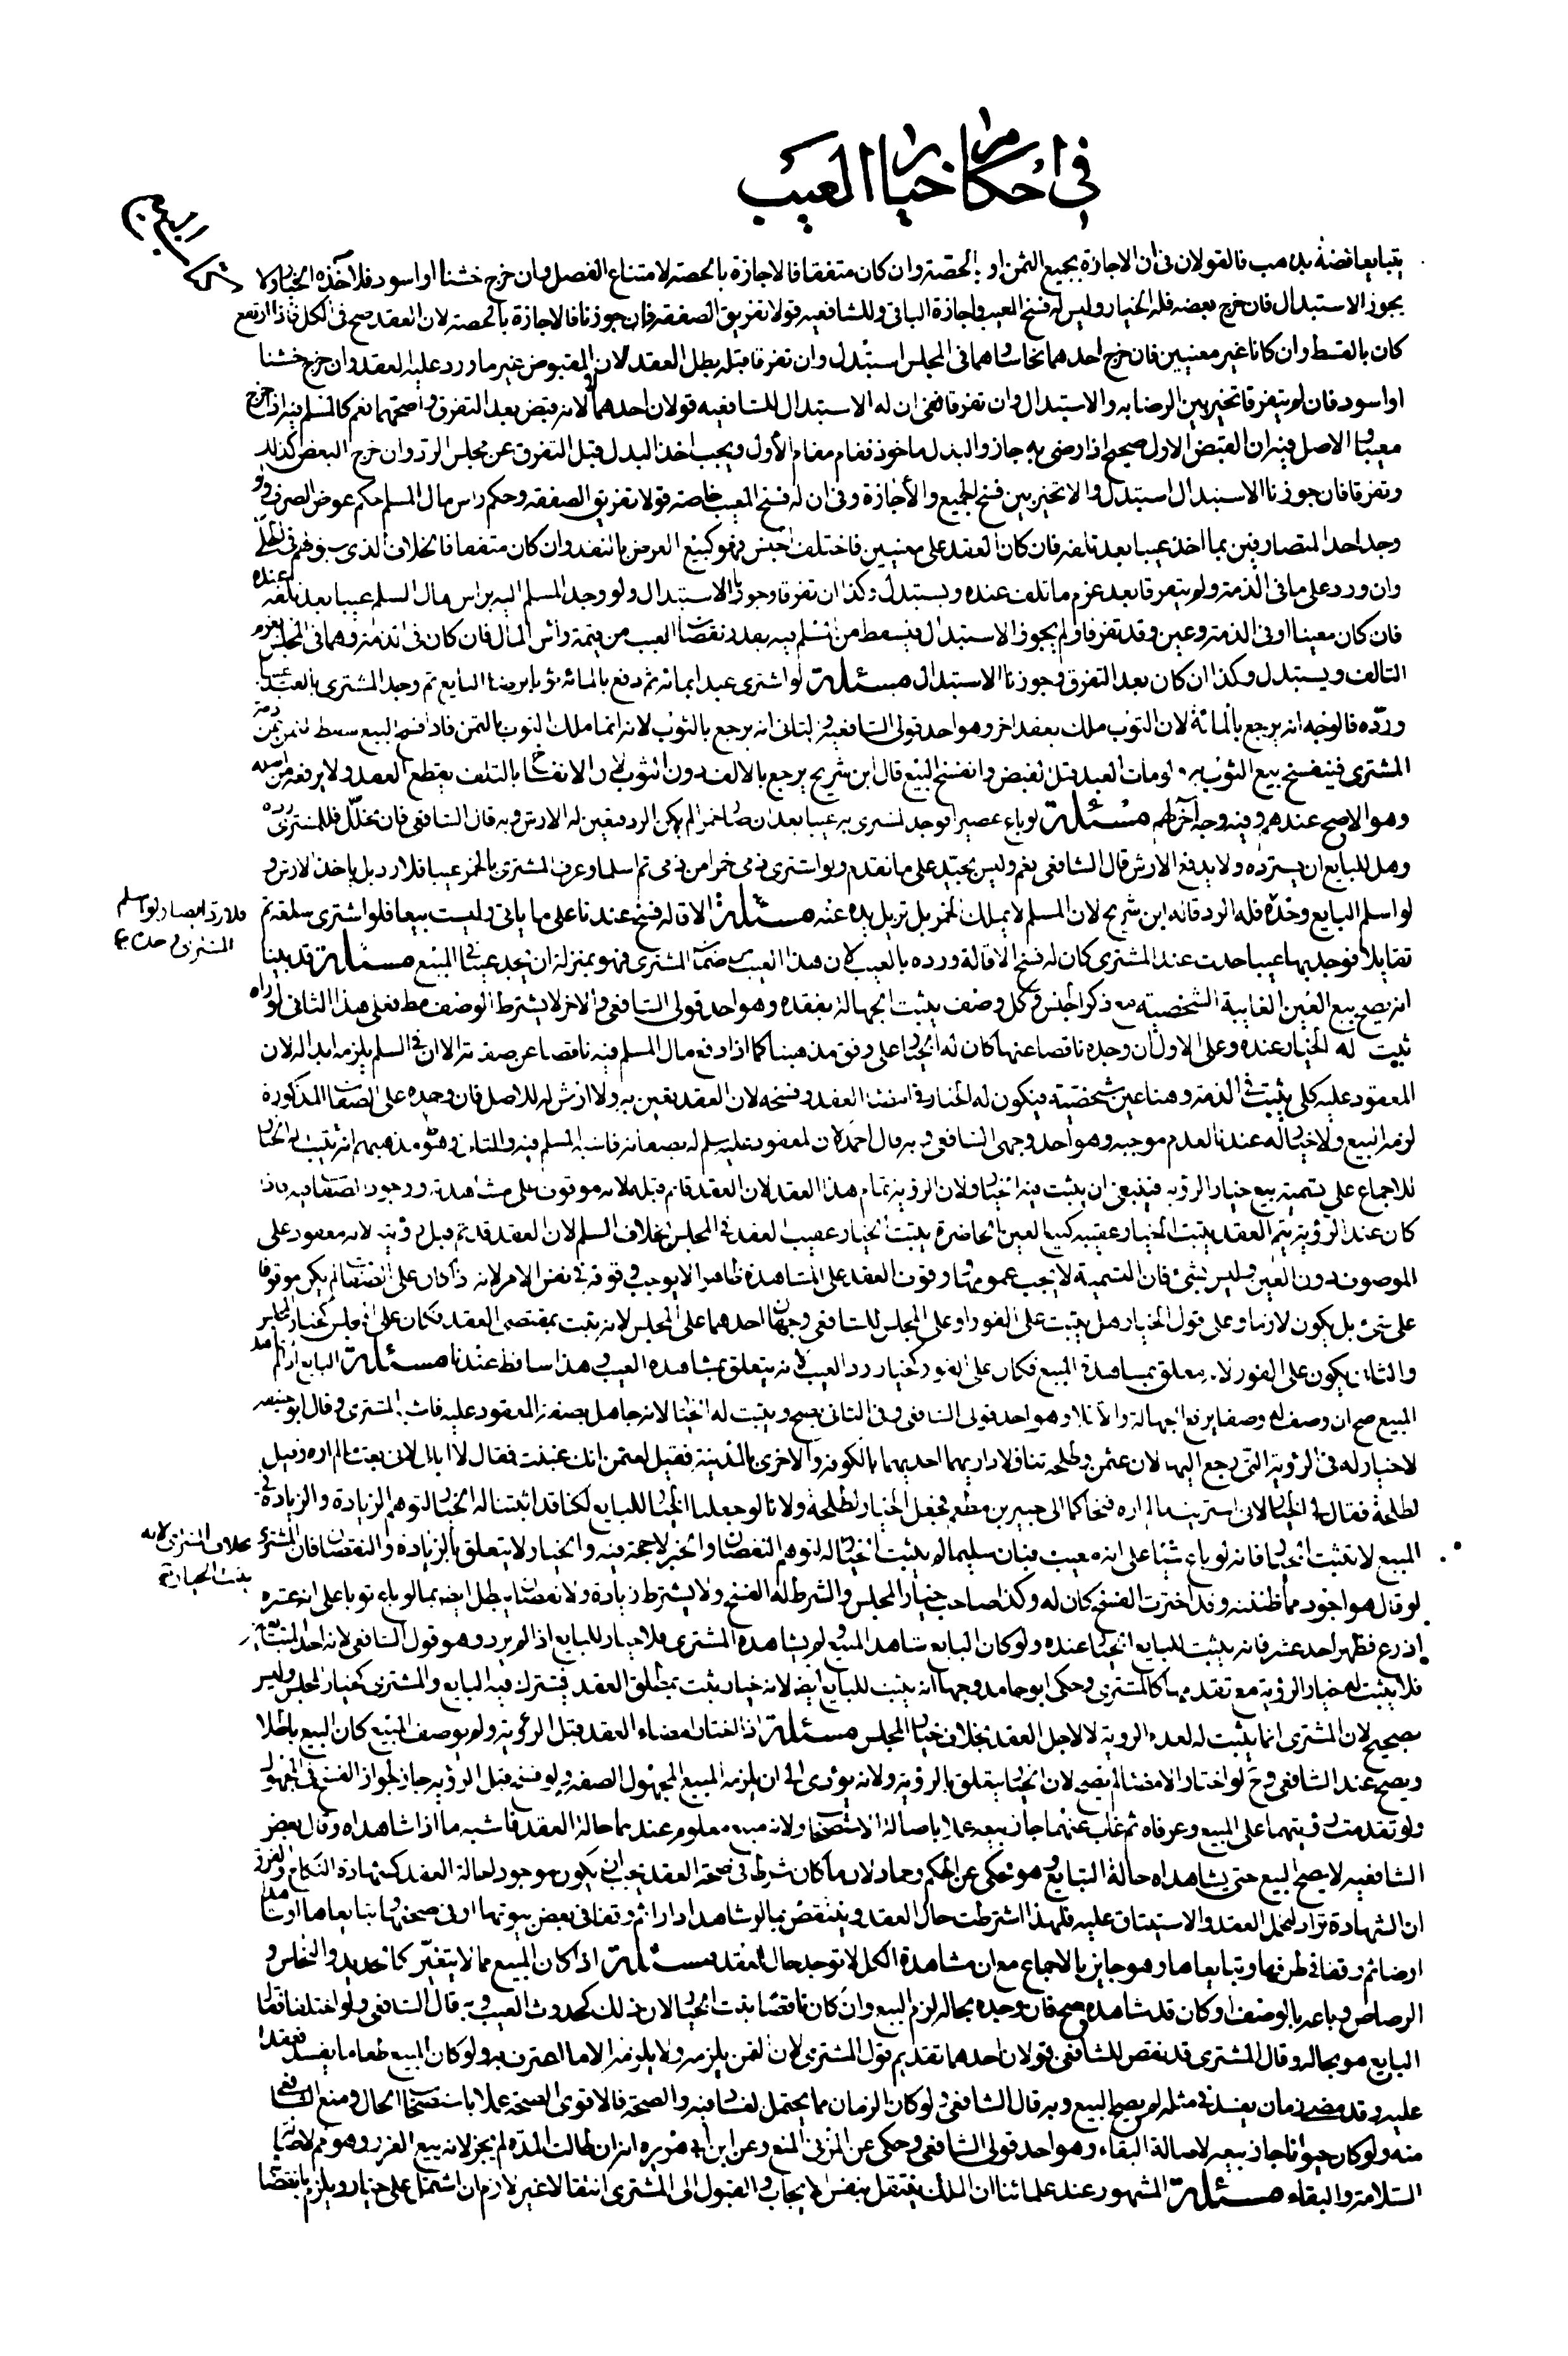 في احكام خيار العيب
كتاب البيع
يتبايعا فضة بذهب فالقولان فى ان الاجازة بجميع الثمن او بالحصة وان كان متفقا فالاجازة بالحصة لامتناع الفصل وان خرج خشنا او اسود فلآخذه الخيار ولا
يجوز الاستبدال فان خرج بعضه فله الخيار وليس له فسخ المعيب واجازة الباقى وللشافعيه قولا تفريق الصفقه فان جوزنا فالاجازة بالحصة لان العقد صح فى الكل فاذا ارتفع
كان بالقسط وان كانا غير معنيين فان خرج احدهما نحاسا وهما فى المجلس استبدل وان تفرقا قبله بطل العقد لان المقبوض غير ما ورد عليه العقد وان خرج خشنا
او اسود فان لم يتفرقا تخير بين الرضا به والاستبدال وان تفرقا ففى ان له الاستبدال للشافعيه قولان احدهما لا لانه قبض بعد التفرق واصحهما نعم كالمسلم فيه اذا خرج
معيبا والاصل فيه ان القبض الاول صحيح اذا رضى به جاز والبدل ماخوذ فقام مقام الأول ويجب اخذ البدل قبل التفرق عن مجلس الرد وان خرج البعض كذلك
وتفرقا فان جوزنا الاستبدال استبدل والا تخير بين فسخ الجميع والاجازة وفى ان له فسخ المعيب خاصة قولا تفريق الصفقه وحكم راس مال المسلم حكم عوض الصرف ولو
وجد احد المتصارفين بما اخذ عيبا بعد تلفه فان كان العقد على معنيين فاختلف الجنس فهو كبيع العرض بالنقد وان كان متفقا فالخلاف الذى سبق فى الحلى
وان ورد على ما فى الذمة ولم يتفرقا بعد غرم ما تلف عنده ويستبدل وكذا ان تفرقا وجوزنا الاستبدال ولو وجد المسلم اليه براس مال السلم عيبا بعد تلفه عنده
فان كان معينا او فى الذمة وعين وقد تفرقا ولم يجوز الاستبدال فيسقط من المسلم فيه بقدر نقصان العيب من قيمة رأس المال فان كان فى الذمة وهما فى المجلس يغرم
التالف ويستبدل وكذا ان كان بعد التفرق وجوزنا الاستبدال مسئلة لو اشترى عبدا بمائة ثم دفع بالمائة ثوبا برضا البايع ثم وجد المشترى بالعبد عيبا
وردّه فالوجه انه يرجع بالمائة لان الثوب ملك بعقد اخر وهو احد قولى الشافعية والثانى انه يرجع بالثوب لانه انما ملك الثوب بالثمن فاذا فسخ البيع سقط الثمن من ذمة
المشترى فينفسخ بيع الثوب به ولو مات العبد قبل القبض وانفسخ البيع قال ابن شريح يرجع بالالف دون الثوب لان الانفساخ بالتلف يقطع العقد ولا يرفعه من اصله
وهو الاصح عندهم وفيه وجه آخر لهم مسئلة لو باع عصيرا فوجد المشترى به عيبا بعد ان صار خمرا لم يكن الرد فيعين له الارش وبه قال الشافعى فان تخلّل فللمشترى رده
وهل للبايع ان يسترده ولا يدفع الارش قال الشافعى نعم وليس بجيد على ما تقدم ولو اشترى ذمى خمرا من ذمى ثم اسلما وعرف المشترى بالخمر عيبا فلا رد بل ياخذ الارش و
لو اسلم البايع وحده فله الرد قاله ابن شريح لان المسلم لا يملك الخمر بل تزيل يده عنه مسئلة الاقاله فسخ عندنا على ما ياتى وليست بيعا فلو اشترى سلعة ثم
تقايلا فوجد بها عيبا حدث عند المشترى كان له فسخ الاقالة ورده بالعيب لان هذا العيب من ضمان المشترى فهو بمنزلة ان يجد عيبا فى المبيع مسئلة قد بينا
انه يصح بيع العين الغايبة الشخصية مع ذكر الجنس وكل وصف يثبت الجهالة بفقده وهو احد قولى الشافعى والاخر لا يشترط الوصف فعلى هذا الثانى لو راه
ثبت له الخيار عنده وعلى الاول ان وجده ناقصا عنها كان له الخيار على وفق مذهبنا كما اذا دفع مال المسلم فيه ناقصا عن صفته الا ان فى السلم يلزمه ابداله لان
المعقود عليه كلى يثبت فى الذمة وهنا عين شخصية فيكون له الخيار فى امضاء العقد وفسخه لان العقد يعين به ولا ارش له للاصل فان وجده على الصفات المذكورة
لزمه البيع ولا خيار له عندنا لعدم موجبه وهو احد وجهى الشافعى وبه قال احمد لان المعقود عليه سلم له بصفاته فاشبه المسلم فيه والثانى وهو مذهبهم انه يثبت له الخيار
للاجماع على تسمية بيع خيار الرؤيه فينبغى ان يثبت فيه الخيار ولان الرؤية تمام هذا العقد لان العقد قائم قبله لانه موقوف على مشاهدته ووجود الصفات فيه فاذا
كان عند الرؤية يتم العقد يثبت الخيار عقيبه كبيع العين الحاضرة يثبت الخيار عقيب العقد فى المجلس بخلاف السلم لان العقد قد تم قبل رؤيته لانه معقود على
الموصوف دون العين وليس بشئ فان التسمية لا يجب عمومها ووقوف العقد على المشاهدة ظاهرا لا يوجب وقوفه فى نفس الامر لانه اذا كان على الصفات لم يكن موقوفا
على شئ بل يكون لازما وعلى قول الخيار هل يثبت على الفور او على المجلس للشافعى وجهان احدهما على المجلس لانه يثبت بمقتضى العقد فكان على المجلس كخيار المجلس
والثانى يكون على الفور لانه معلق بمشاهدة المبيع فكان على الفور كخيار رد العيب لانه يتعلق بمشاهدة العيب وهذا ساقط عندنا مسئلة البايع اذا لم يشاهد
المبيع صح ان وصف له وصفا يرفع الجهالة والا فلا وهو احد قولى الشافعى وفى الثانى يصح ويثبت له الخيار لانه جاهل بصفة المعقود عليه فاشبه المشترى وقال ابو حنيفه
لا خيار له فى الرؤية التى رجع اليها لان عثمن وطلحه تناقلا داريهما احديهما بالكوفة والاخرى بالمدينة فقيل لعثمن انك غبنت فقال لا ابالى لانى بعت ما لم اره وقيل
لطلحة فقال لى الخيار لانى اشتريت ما لم اره فتحاكما الى جبير بن مطعم فجعل الخيار لطلحة ولانا لو جعلنا الخيار للبايع لكنا قد اثبتنا له الخيار لتوهم الزيادة والزيادة فى
المبيع لا تثبت الخيار فانه لو باع شيئا على انه معيب فبان سليما لم يثبت الخيار له لتوهم النقصان والخبر لا حجة فيه والخيار لا يتعلق بالزيادة والنقصان فان المشترى
لو قال هو اجود مما ظننته وقد اخترت الفسخ كان له وكذا صاحب خيار المجلس والشرط له الفسخ ولا يشترط زيادة ولا نقصان ويبطل ايضا بما لو باع ثوبا على انه عشره
اذرع فظهر احد عشر فانه يثبت للبايع الخيار عنده ولو كان البايع شاهد المبيع ولم يشاهده المشترى فلا خيار للبايع اذا لم يرد وهو قول الشافعى لانه احد المتبايعين
فلا يثبت له خيار الرؤية مع تقدمها كالمشترى وحكى ابو حامد وجها انه يثبت للبايع ايضا لانه خيار يثبت بمطلق العقد فيشترك فيه البايع والمشترى كخيار المجلس وليس
بصحيح لان المشترى انما يثبت له لعدم الروية لا لاجل العقد بخلاف خيار المجلس مسئلة اذا اختار امضاء العقد قبل الرؤية ولم يوصف المبيع كان البيع باطلا
ويصح عند الشافعى وح لو اختار الامضاء لم يصح لان الخيار يتعلق بالرؤية ولانه يؤدى الى ان يلزمه المبيع المجهول الصفه ولو فسخه قبل الرؤيه جاز لجواز الفسخ فى المجهول
ولو تقدمت رؤيتهما على المبيع وعرفاه ثم غاب عنهما جاز بيعه عملا باصالة الاستصحاب ولانه مبيع معلوم عندهما حالة العقد فاشبه ما اذا شاهداه وقال بعض
الشافعيه لا يصح البيع حتى يشاهداه حالة التبايع وهو محكى عن الحكم وحماد لان ما كان شرطا فى صحة العقد يجب ان يكون موجودا حالة العقد كشهادة النكاح والفرق
ان الشهادة تراد لتحمل العقد والاستيثاق عليه فلهذا اشترطت حال العقد وينتقض بما لو شاهدا دارا ثم وقفا فى بعض بيوتها او فى صحنها وتبايعاها او شاهدا
ارضا ثم وقفا فى طرفها وتبايعاها وهو جايز بالاجماع مع ان مشاهدة الكل لا توجد حال العقد مسئلة اذا كان المبيع مما لا يتغيّر كالحديد والنحاس و
الرصاص وباعه بالوصف او كان قد شاهده صح فان وجده بحاله لزم البيع وان كان ناقصا يثبت الخيار لان ذلك كحدوث العيب وبه قال الشافعى ولو اختلفا فقال
البايع هو بحاله وقال المشترى قد نقص للشافعى قولان احدهما تقديم قول المشترى لان الثمن يلزمه ولا يلزمه الا ما اعترف به ولو كان المبيع طعاما يفسد فعقدا
عليه وقد مضى زمان يفسد فى مثله لم يصح البيع وبه قال الشافعى ولو كان الزمان مما يحتمل الفساد فيه والصحة فالاقوى الصحة عملا باستصحاب الحال ومنع الشافعى
منه ولو كان حيوانا جاز بيعه لاصالة البقاء وهو احد قولى الشافعى وحكى عن المزنى المنع وعن ابن ابى هريره انه ان طالت المدة لم يجز لانه بيع الغرر وهو لاصالة
السلامة والبقاء مسئلة المشهور عند علمائنا ان الملك ينتقل بنفس الايجاب والقبول الى المشترى انتقالا غير لازم ان اشتمل على خيار ويلزم بانقضاء
فلا رد
المشترى
بخلاف المشترى لانه
يثبت الخيار